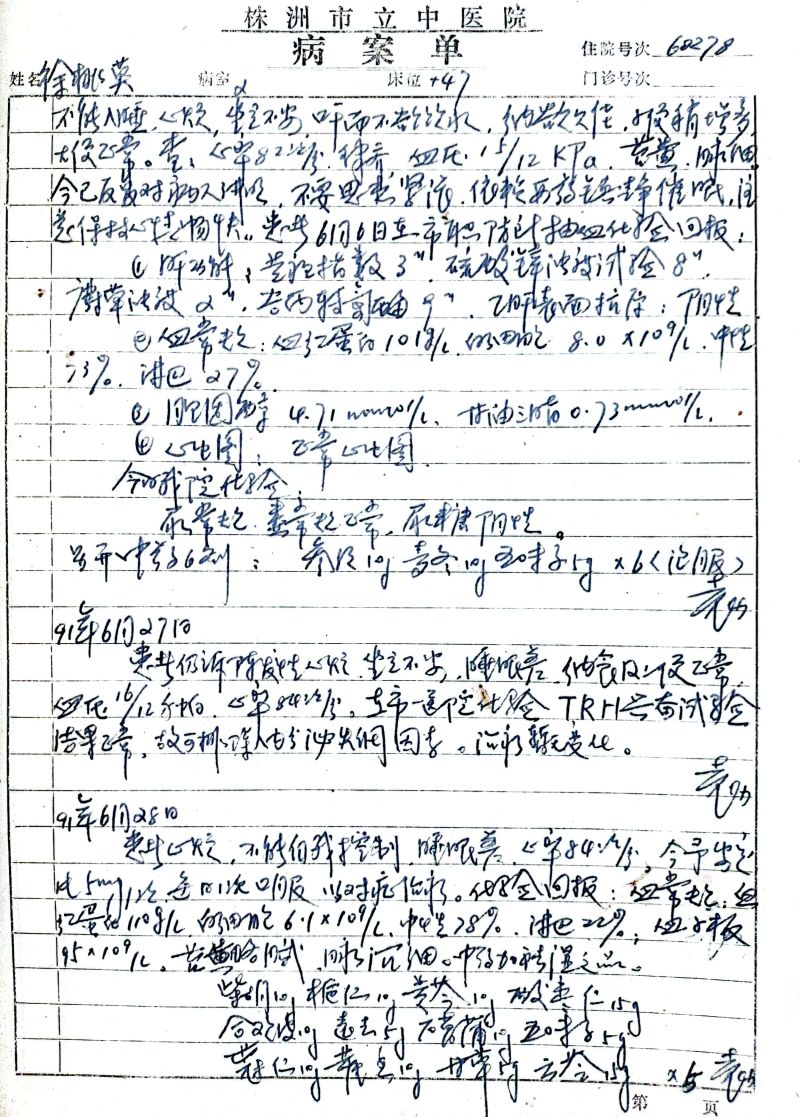 株洲市立中医院
病案单
住院号次 68278
姓名 徐桃英 病室 2 床位 +47 门诊号次
不能入睡，心烦，坐立不安，口干而不欲饮水，纳欠佳，小便稍增多
大便正常。查：心率82次/分，律齐，血压15/12 KPa，苔黄，脉细
今已反复对病人讲明，不要思想紧张，依赖西药镇静催眠，注
意保持心情畅快。患者6月6日在市职防所抽血化验回报：
① 肝功能：黄疸指数3"，硫酸锌浊度试验8"，
麝草浊度2"，谷丙转氨酶9"，乙肝表面抗原：阴性
② 血常规：血红蛋白101g/L，白细胞8.0×10⁹/L，中性
73%，淋巴27%。
③ 胆固醇4.71mmol/L，甘油三酯0.73mmol/L。
④ 心电图：正常心电图
今日我院化验：
尿常规、粪常规正常，尿糖阴性。
另开中药6剂：参须10g 麦冬10g 五味子5g ×6（泡服）
91年6月27日
患者仍诉阵发性心烦，坐立不安，睡眠差，纳食及二便正常，
血压16/12千帕，心率84次/分，在市一医院化验TRH兴奋试验
结果正常，故可排除内分泌失调因素。治疗暂无变化。
91年6月28日
患者心烦，不能自我控制，睡眠差，心率84次/分，今予安定
片5mg/次，每日1次口服，以对症治疗。化验回报：血常规：血
红蛋白110g/L，白细胞6.1×10⁹/L，中性78%，淋巴22%，血小板
95×10⁹/L，苔黄略腻，脉沉细。中药加祛湿之品。
柴胡10g 栀仁10g 黄芩10g 酸枣仁15g
合欢皮10g 远志5g 石菖蒲10g 五味子5g
10g 10g 甘草5g 云苓15g ×5
第 页